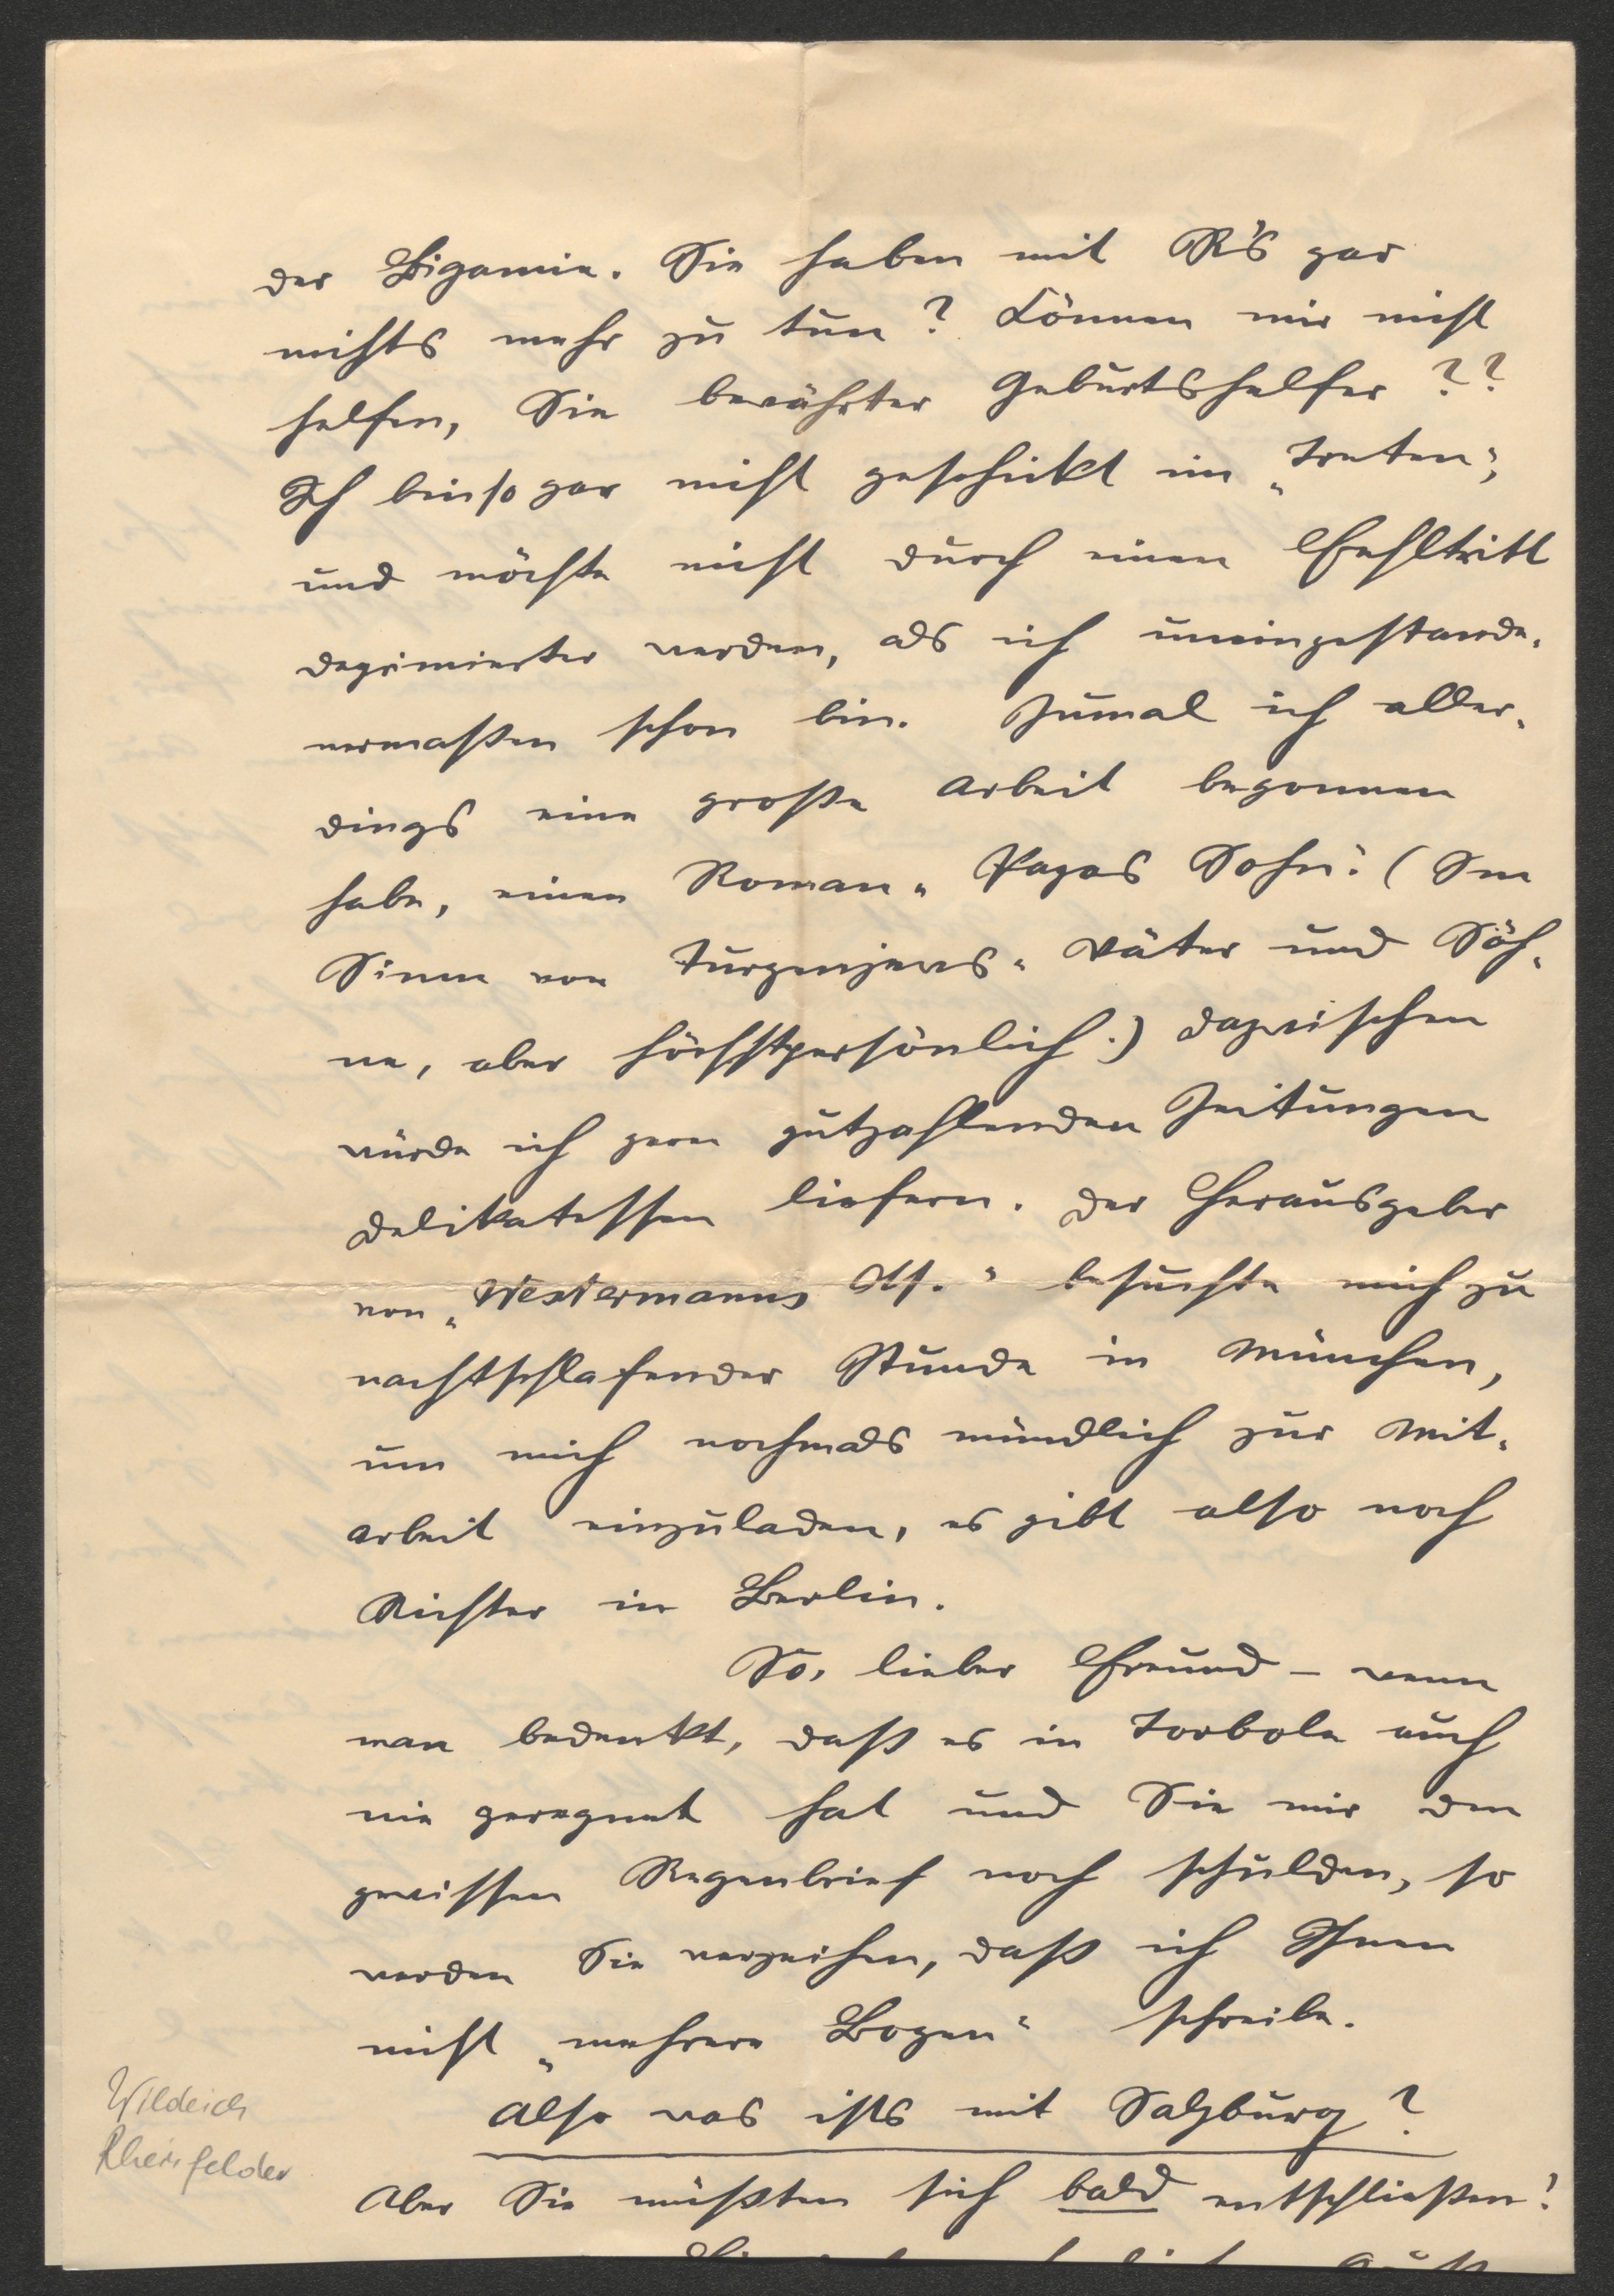 der Bigamie. Sie haben mit R's gar
nichts mehr zu tun? Können mir nicht
helfen, Sie bewährter Geburtshelfer??
Ich bin so gar nicht geschickt im „Treten",
und möchte nicht durch einen Fehltritt
deprimierter werden, als ich uneingestande-
nermaßen schon bin. Zumal ich aller-
dings eine große Arbeit begonnen
habe, einen Roman „Papas Sohn". (Im
Sinne von Turgenjews „Väter und Söh-
ne, aber höchstpersönlich.) Dazwischen
würde ich gern gutzahlenden Zeitungen
Delikatessen liefern. Der Herausgeber
von „Westermanns Mh." besuchte mich zu
nachtschlafender Stunde in München,
um mich nochmals mündlich zur Mit-
arbeit einzuladen, es gibt also noch
Richter in Berlin.
So, lieber Freund – wenn
man bedenkt, daß es in Torbole auch
nie geregnet hat und Sie mir den
gewissen Regenbrief noch schulden, so
werden Sie verzeihen, daß ich Ihnen
nicht „mehrere Bogen" schreibe.
Also was ists mit Salzburg?
Aber Sie müßten sich bald entschließen!
Wildeich
Rheinfelder